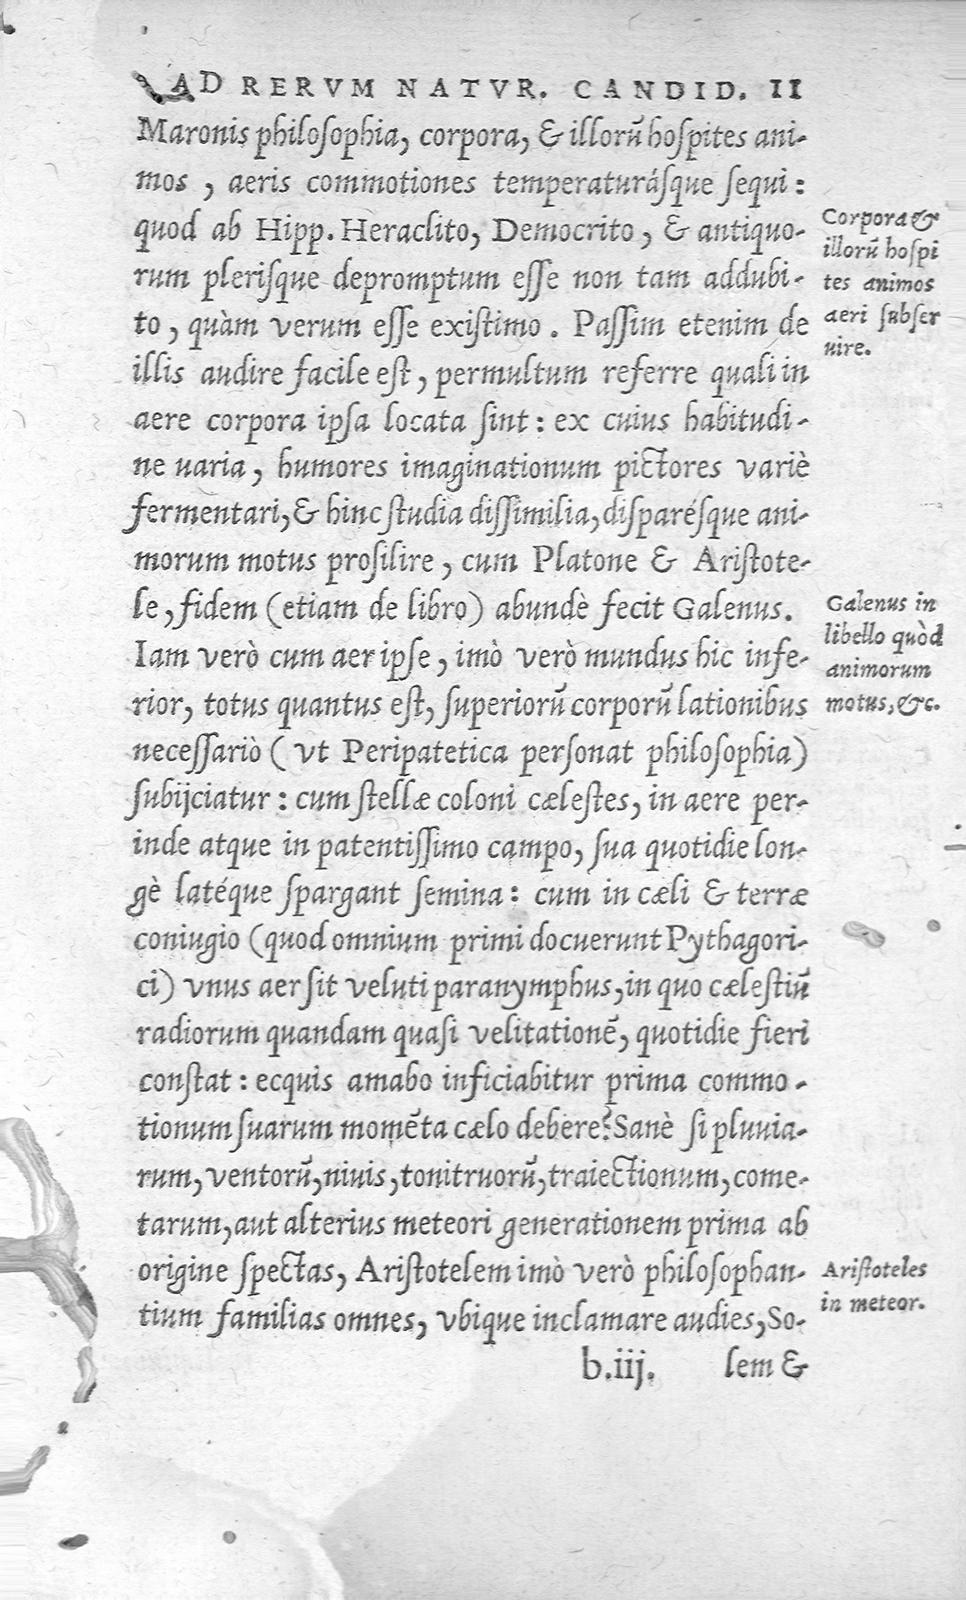 AD RERVM NATVR. CANDID. II
Maronis philoſophia, corpora, & illorū hoſpites ani-
mos , aeris commotiones temperaturáſque ſequi:
quod ab Hipp. Heraclito, Democrito, & antiquo-
rum pleriſque depromptum eſſe non tam addubi-
to, quàm verum eſſe exiſtimo. Paſſim etenim de
illis audire facile eſt, permultum referre quali in
aere corpora ipſa locata ſint: ex cuius habitudi-
ne uaria, humores imaginationum pictores variè
fermentari, & hinc ſtudia diſſimilia, diſparéſque ani-
morum motus proſilire, cum Platone & Ariſtote-
le, fidem (etiam de libro) abundè fecit Galenus.
Iam verò cum aer ipſe, imò verò mundus hic infe-
rior, totus quantus eſt, ſuperiorū corporū lationibus
neceſſariò (vt Peripatetica perſonat philoſophia)
ſubijciatur: cum ſtellæ coloni cæleſtes, in aere per-
inde atque in patentiſſimo campo, ſua quotidie lon-
gè latéque ſpargant ſemina: cum in cæli & terræ
coniugio (quod omnium primi docuerunt Pythagori-
ci) vnus aer ſit veluti paranymphus, in quo cæleſtiū
radiorum quandam quaſi velitationē, quotidie fieri
conſtat: ecquis amabo inficiabitur prima commo-
tionum ſuarum momēta cælo debere? Sanè ſi pluuia-
rum, ventorū, niuis, tonitruorū, traiectionum, come-
tarum, aut alterius meteori generationem prima ab
origine ſpectas, Ariſtotelem imò verò philoſophan-
tium familias omnes, vbique inclamare audies, So-
b.iij. lem &
Corpora &
illorū hoſpi
tes animos
aeri ſubſer
uire.
Galenus in
libello quòd
animorum
motus, &c.
Ariſtoteles
in meteor.